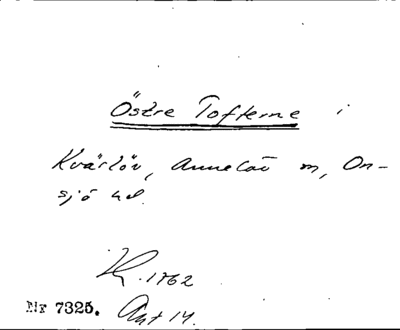 Östre Tofterne i
Kvärlöv, Annelöv m, On-
sjö hd.
1762
Nr 7325. Akt 14.